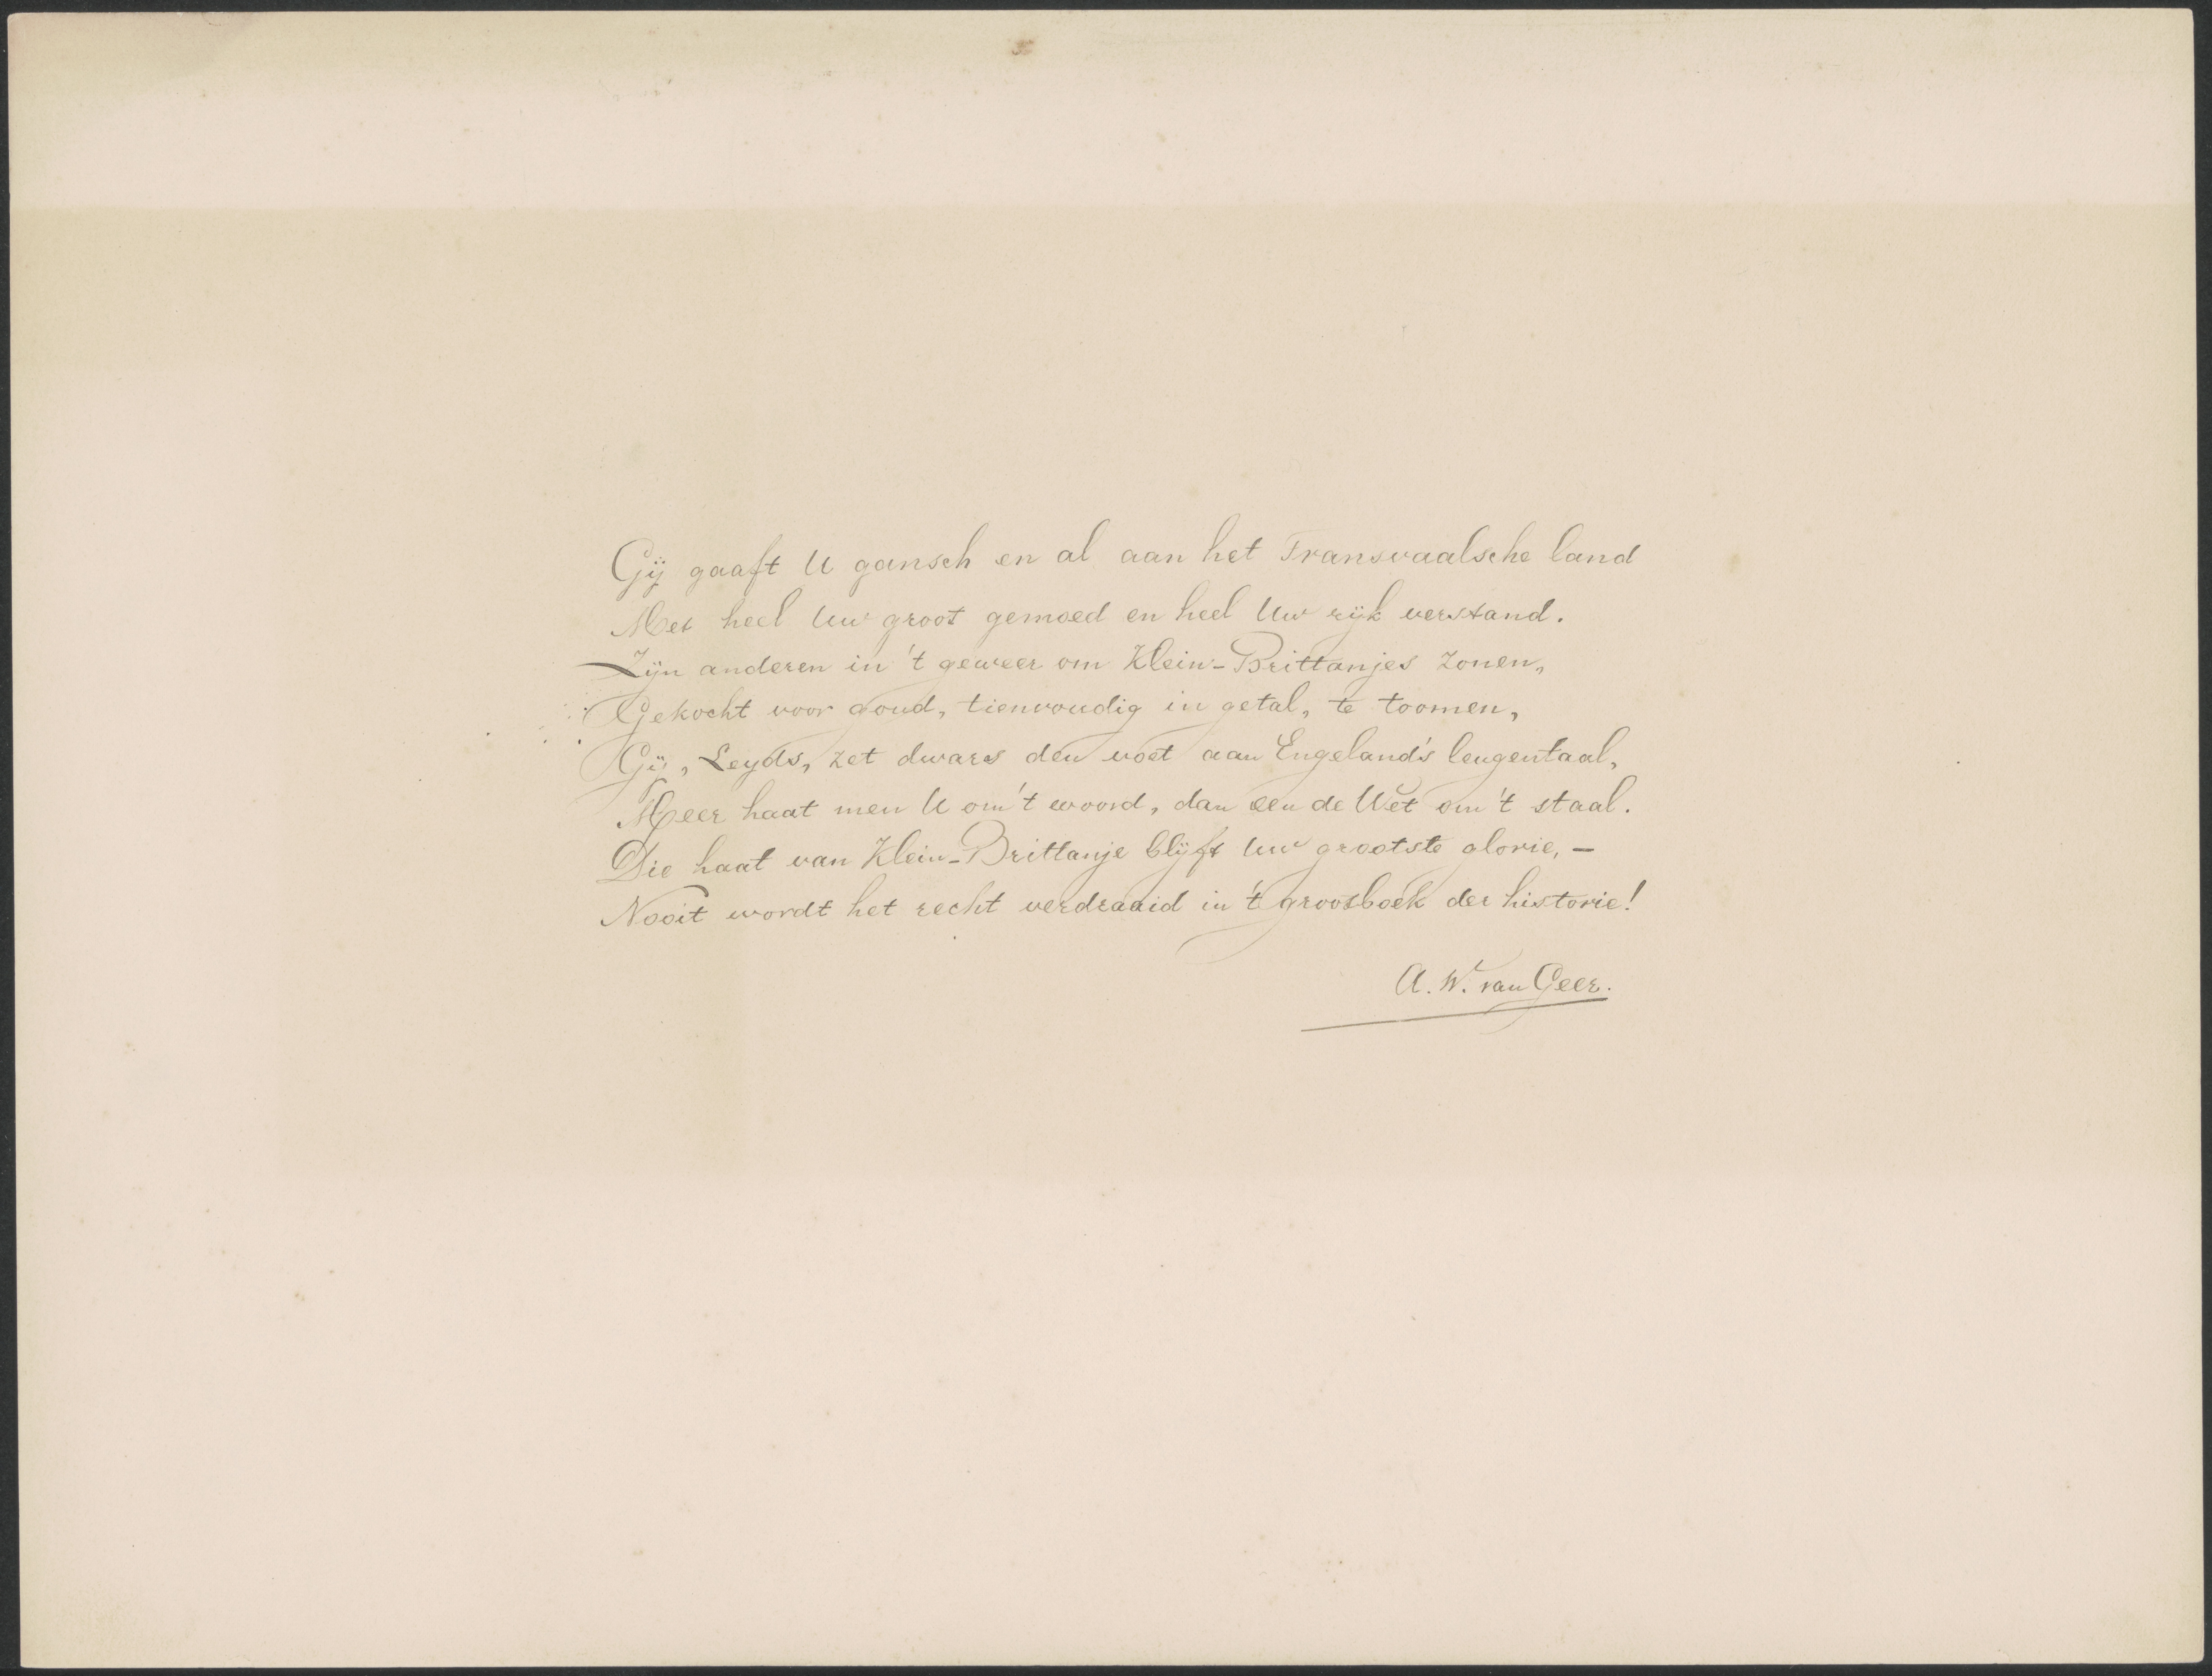 Gij gaaft U gansch en al aan het Transvaalsche land
Met heel Uw groot gemoed en heel Uw rijk verstand.
Zijn anderen in 't geweer om Klein-Brittanjes zonen,
Gekocht voor goud, tienvoudig in getal, te toomen,
Gij, Leyds, zet dwars den voet aan Engeland's leugentaal,
Meer haat men U om 't woord, dan een de Wet om 't staal.
Die haat van Klein-Brittanje blijft Uw grootste glorie, –
Nooit wordt het recht verdraaid in 't grootboek der historie!
A. W. van Geer.